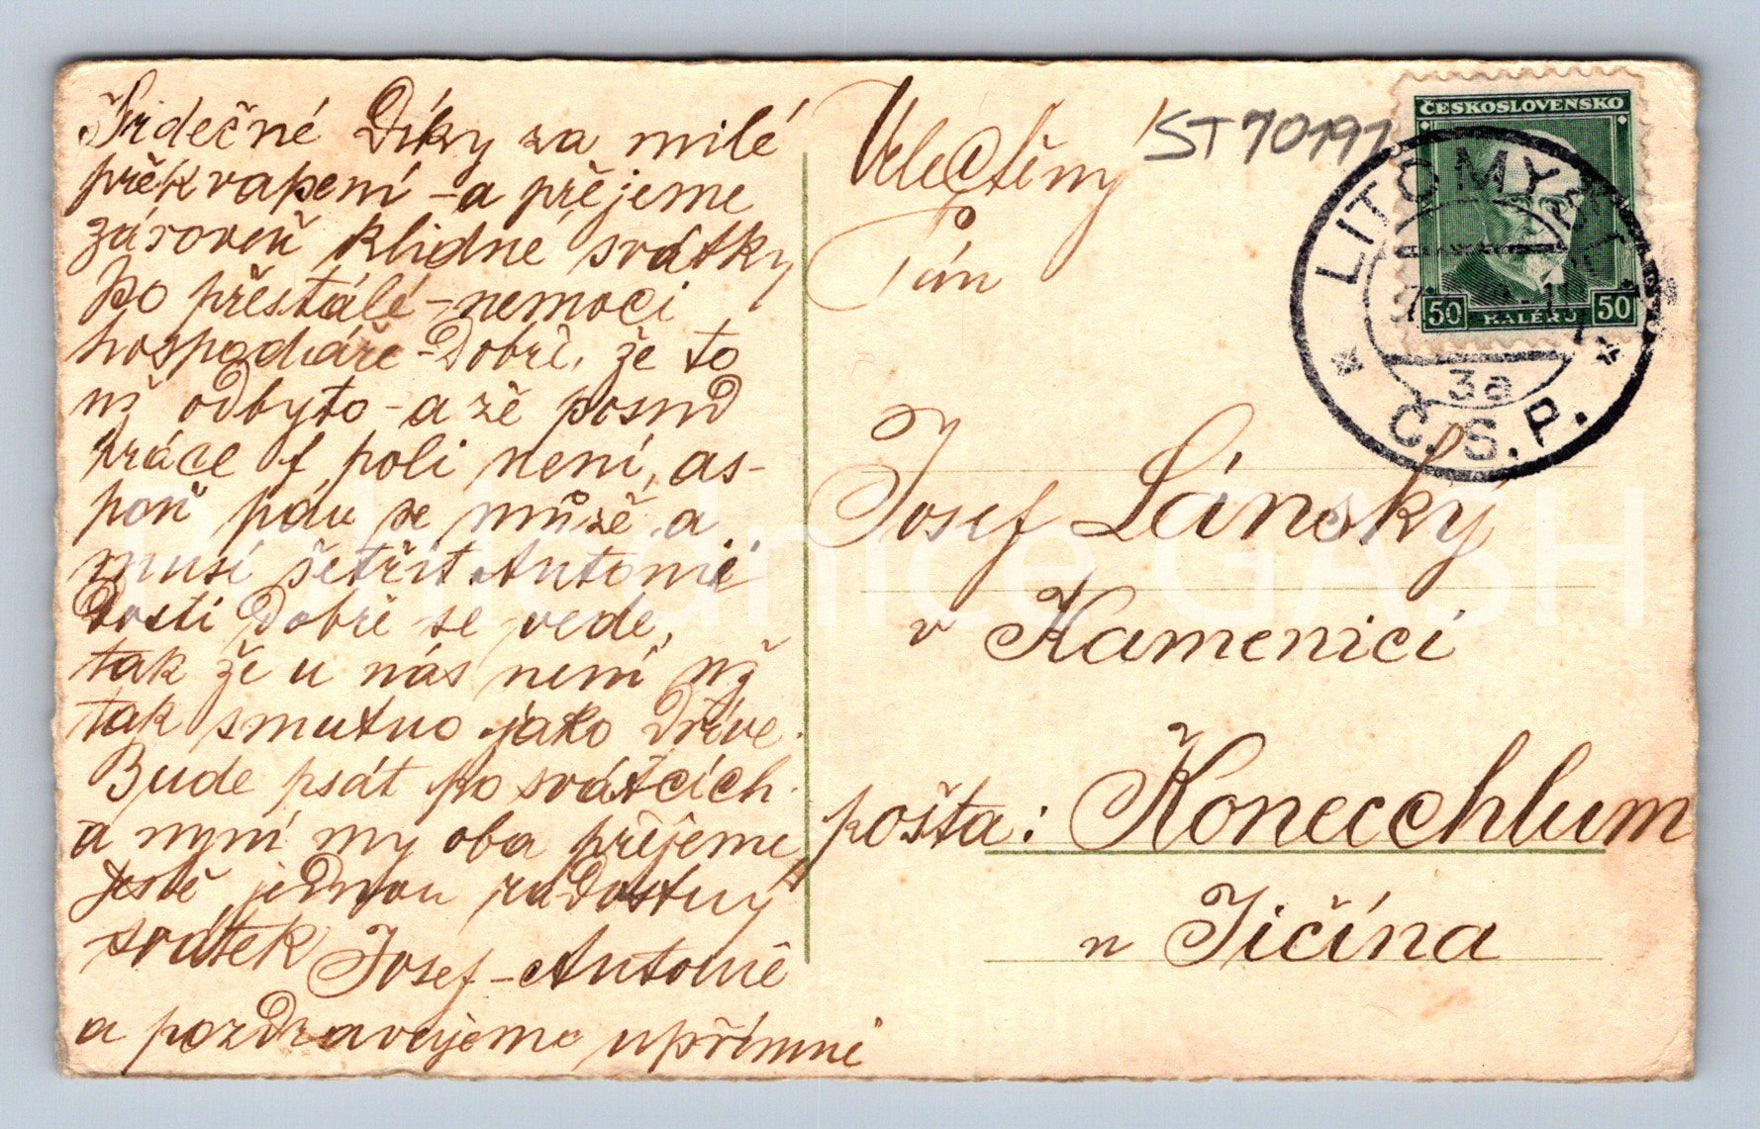 Srdečné Díky za milé
překvapení - a přejeme
zároveň klidné svátky
Po přestálé - nemoci
hospodáře - Dobře, že to
již odbyto - a že posud
práce f poli není, as-
poň pár se může a
musí šetřit. Antonií
Dosti Dobře se vede,
tak že u nás není již
tak smutno jako Dříve.
Bude psát po svátcích.
a nyní my oba přejeme
Jestě jednou radostný
svátek Josef - Antonie
a pozdravujeme upřímně
Velectěný
Pán
Josef Lánský
v Kamenici
pošta: Konecchlum
u Jičína
ST 70791
ČESKOSLOVENSKO
50 HALÉŘŮ 50
LITOMYŠL
3a
Č.S.P.
Pohlednice GASH